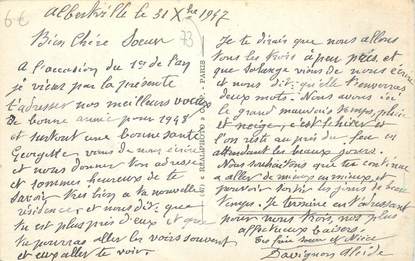 6€
Albertville le 31 Xbre 1947
73
Bien Chère Soeur
A l'occasion du 1er de l'an
je viens par la présente
t'adresser nos meilleurs voeux
de bonne année pour 1948
et surtout une bonne santé
Georgette vient de nous écrire
et nous donner ton adresse
et sommes heureux de te
savoir très bien à ta nouvelle
résidence et nous dit que tu
est plus près d'eux et que
tu pourras aller les voir souvent
et eux aller te voir
REALPHOTO
PARIS
Je te dirais que nous allons
tous les trois à peu près, et
que Solange vient de nous écrire
et nous dit qu'elle t'enverras
deux mots. Nous avons ici
le grand mauvais temps, pluie
et neige, c'est l'hiver et
l'on reste auprès du feu en
attendant les beaux jours.
Nous souhaitons que ta continue
a aller de mieux en mieux et
pouvoir sortir les jours de beau
temps. Je termine en t'adressant
pour nous trois, nos plus
affectueux baisers.
Ton frère soeur et Nièce
Davignon